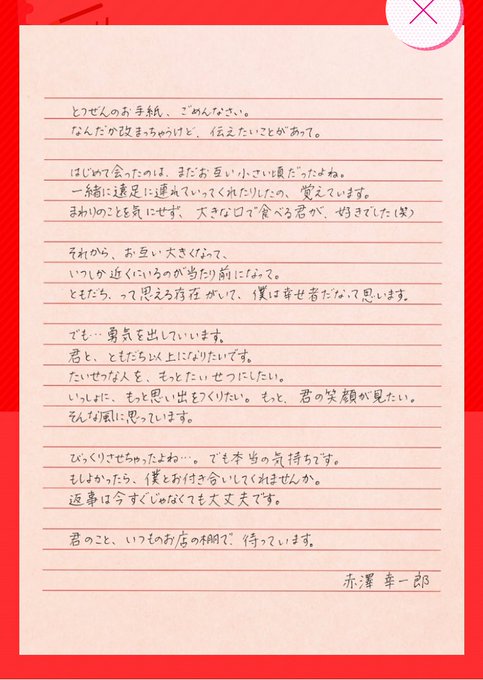 とつぜんのお手紙、ごめんなさい。
なんだか改まっちゃうけど、伝えたいことがあって。
はじめて会ったのは、まだお互い小さい頃だったよね。
一緒に遠足に連れていってくれたりしたの、覚えています。
まわりのことを気にせず、大きな口で食べる君が、好きでした(笑)
それから、お互い大きくなって、
いつしか近くにいるのが当たり前になって。
ともだち、って思える存在がいて、僕は幸せ者だなって思います。
でも…勇気を出していいます。
君と、ともだち以上になりたいです。
たいせつな人を、もっとたいせつにしたい。
いっしょに、もっと思い出をつくりたい。もっと、君の笑顔が見たい。
そんな風に思っています。
びっくりさせちゃったよね…。でも本当の気持ちです。
もしよかったら、僕とお付き合いしてくれませんか。
返事は今すぐじゃなくても大丈夫です。
君のこと、いつものお店の棚で、待っています。
赤澤 幸一郎